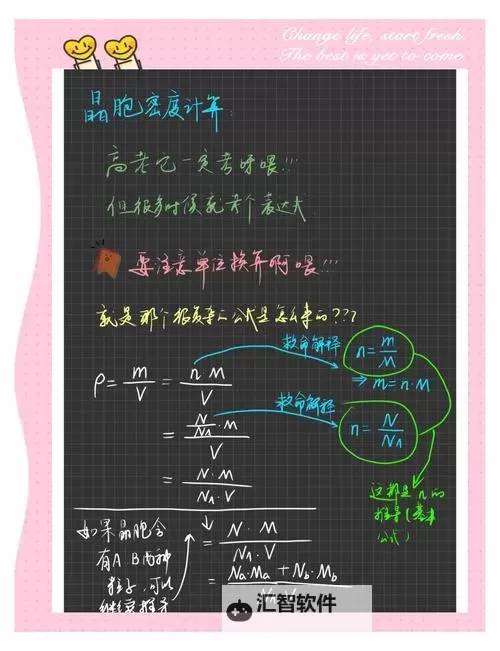 Change life, start fresh.
The best is yet to come.
晶胞密度计算:
高考它一定考呀喂!!!
但很多时候就考个表达式
要注意单位换算啊喂!!!
就是那个很复杂的公式是怎么来的???
救命解释
n = m/M
⇒ m = n·M
ρ = m/V = n·M/V
救命解释
n = N/NA
= (N/NA·M)/V
= N·M/(NA·V)
这都是n的
推导(基本
公式)
如果晶胞含
有A.B两种
粒子,可以
继续推导
↓
= N·M/(NA·V)
= (Na·Ma + Nb·Mb)/
汇智软件